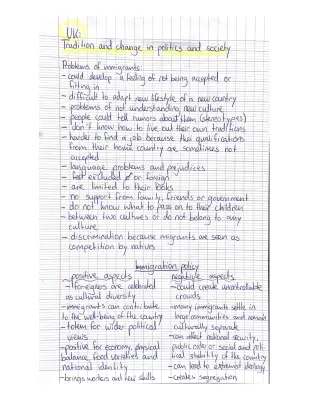 UK:
Tradition and change in politics and society
Problems of immigrants:
- could develop a feeling of not being accepted or
fitting in
- difficult to adapt new lifestyle of a new country
- problems of not understanding new culture
- people could tell rumors about them (stereotypes)
- don't know how to live out their own traditions
- harder to find a job because their qualifications
from their home country are sometimes not
accepted
- language problems and prejudices
- feel excluded or foreign
- are limited to their looks
- no support from family, friends or government
- do not know what to pass on to their children
- between two cultures or do not belong to any
culture
- discrimination because migrants are seen as
competition by natives
Immigration policy
positive aspects
- foreigners are celebrated
as cultural diversity
- immigrants can contribute
to the well-being of the country
- token for wider political
views
- positive for economy, physical
balance, food varieties and
national identity
- brings workers and new skills
negative aspects
- could create uncontrollable
crowds
- many immigrants settle in
large communities and remain
culturally separate
- can affect national security,
public order or social and poli-
tical stability of the country
- can lead to extremist ideology
- creates segregation